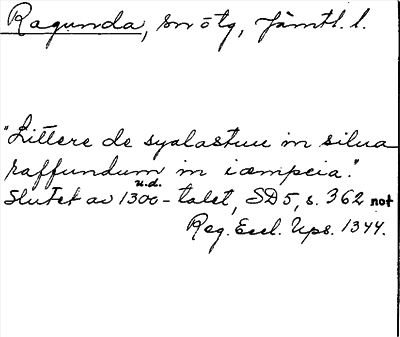 Ragunda, sn ö tg, Jämtl. l.
"Littere de syalastuu in silua
raffundum in iæmpcia."
u.d.
Slutet av 1300-talet, SD5, s. 362 not
Reg. Eccl. Ups. 1344.